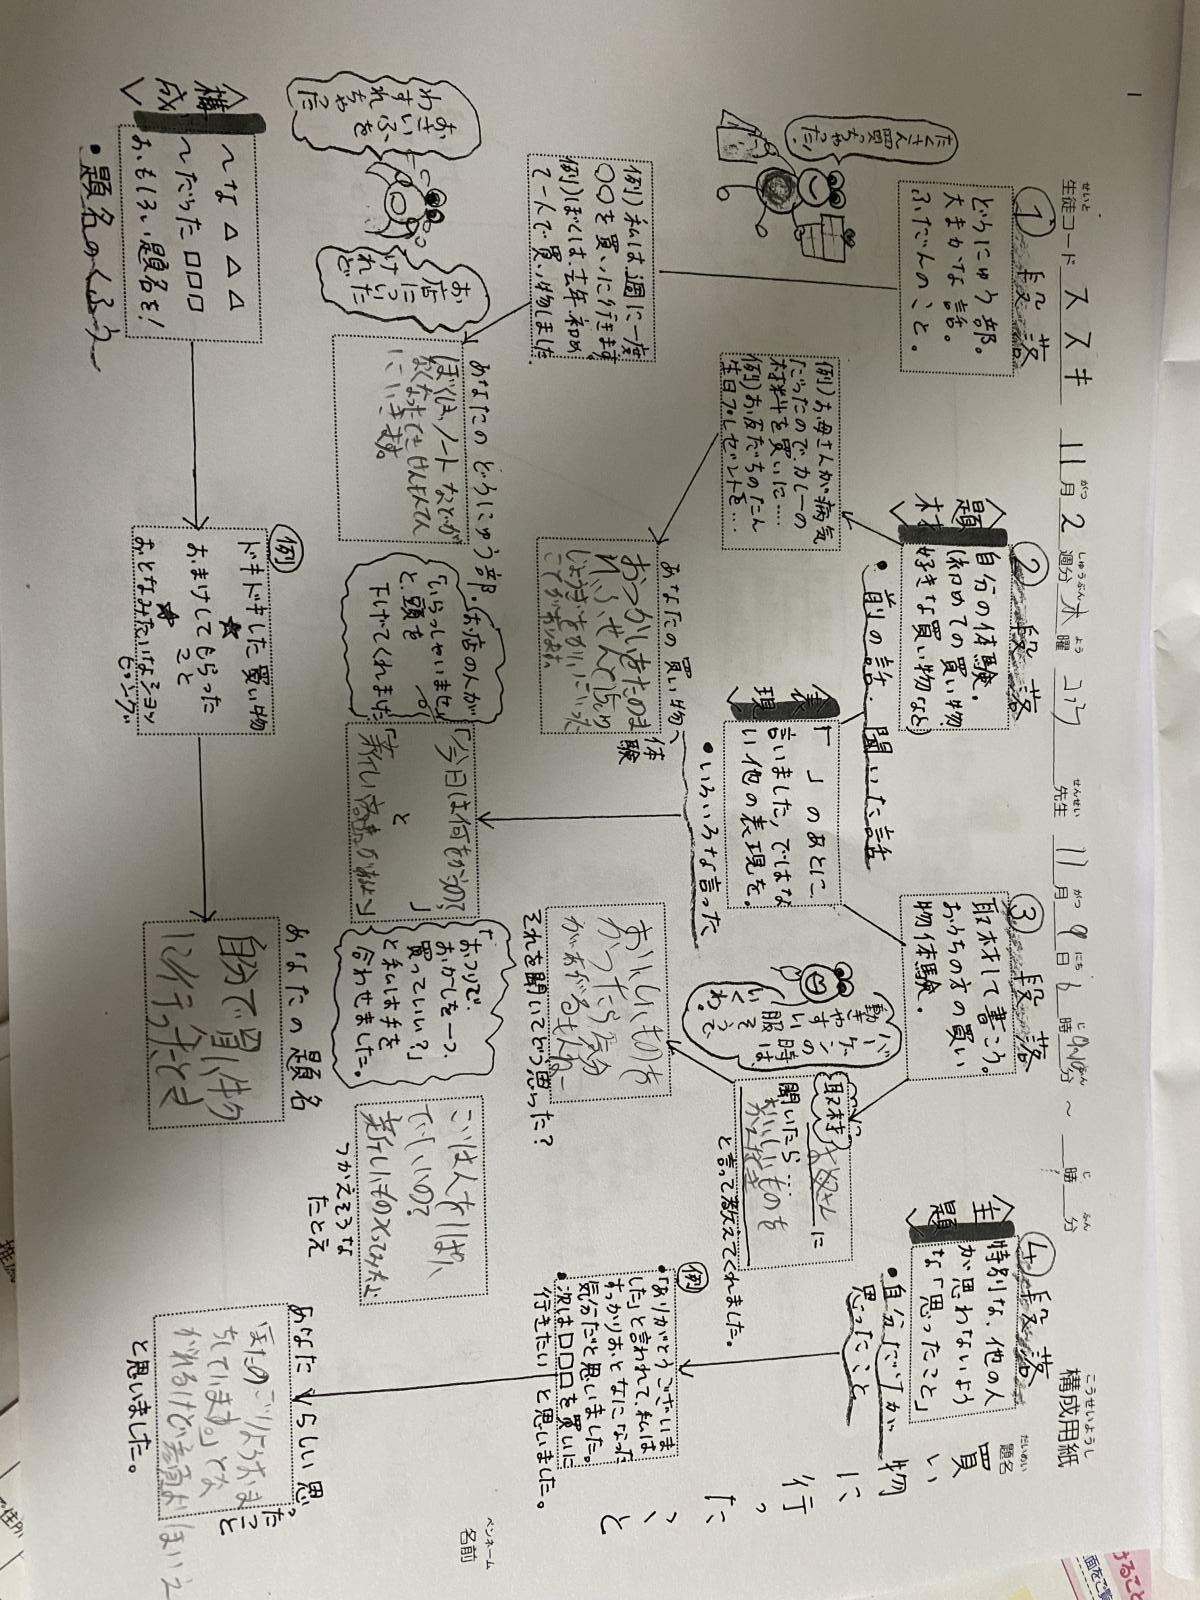 構成用紙
題名
買い物に行ったこと
ペンネーム
名前
生徒コード ススキ 11月2週分 水曜 先生 11月9日
時 分 ～ 時 分
①段落
どうにゅう部。
大まかな話。
ふだんのこと。
たくさん買っちゃった!
例)私は週に一度
〇〇を買いに行きます。
例)ぼくは、去年、初め
て一人で買い物しました。
おさいふを
わすれ
ちゃった
お店に
ついた
けれど
あなたのどうにゅう部。
ぼくは、ノートなどが
なくなったときは
にいきます。
②段落
〈題材〉
自分の体験。
(初めての買い物、
好きな買い物など)
・前の話・聞いた話
例)お母さんが病気
だったので、カレーの
材料を買いに…
例)お友だちのたん
生日プレゼントを…
あなたの買い物体験
おつかいをたのま
れ、
ことがあります。
〈表現〉
「 」のあとに
言いました、ではな
い他の表現を。
・いろいろな言った
お店の人が
「いらっしゃいませ」
と、頭を
下げてくれました。
「今日は何をかうの?」
と
「おつりで、
おかしを一つ、
買っていい?」
と私は手を
合わせました。
③段落
取材して書こう。
おうちの方の買い
物体験。
取材
お母さんに
聞いたら…
おいしいものを
と言って教えてくれました。
バーゲンの
時は、
動きやすい服
でいくそうだわ。
おいしいものを
かったら気分
があがるもんねー
それを聞いてどう思った?
つかえそうな
たとえ
④段落
〈主題〉
特別な、他の人
が思わないよう
な「思ったこと」
・自分だけが
思ったこと
例
・「ありがとうございま
した」と言われて、私は
すっかりおとなになった
気分だと思いました。
・次は□□□を買いに
行きたいと思いました。
あなたらしい思ったこと
またのごりようおま
ちしています。」とな
がれるけど
と思いました。
〈構成〉
～な△△△
～だった□□□
おもしろい題名を!
・題名のくふう
例
ドキドキした買い物
おまけしてもらった
こと
おとなみたいなショッ
ピング
あなたの題名
自分で買い物
に行ったとき